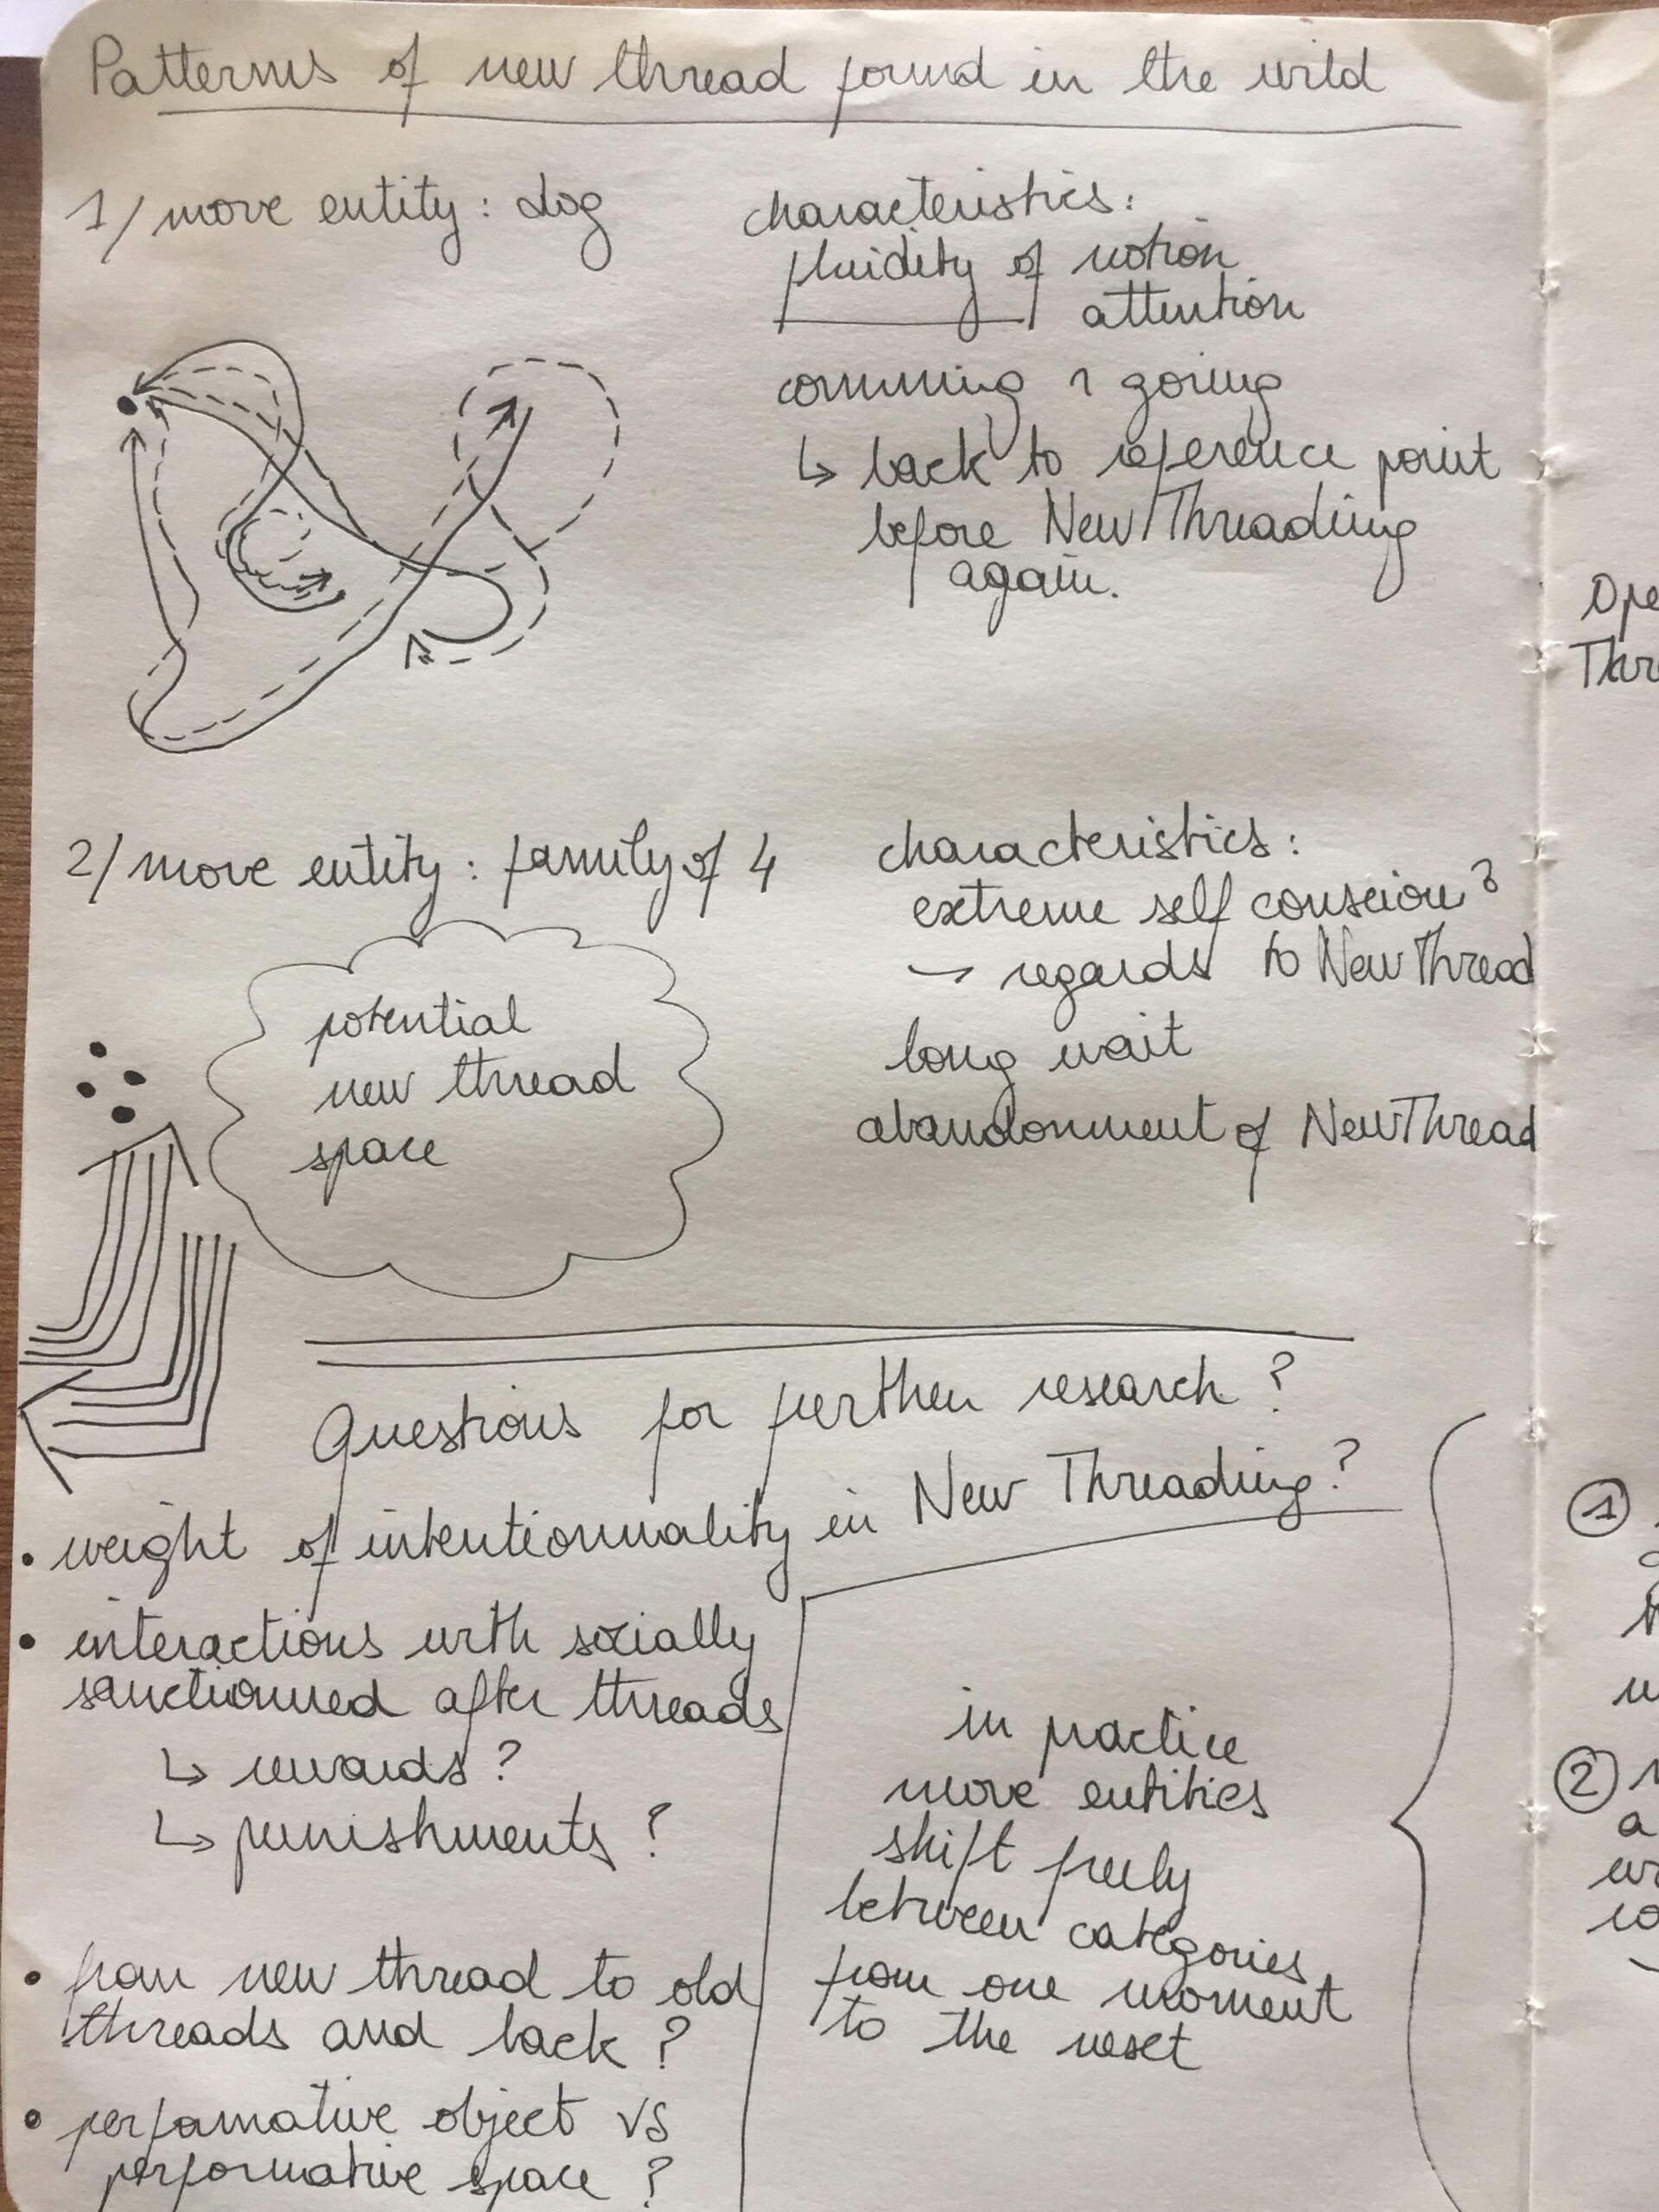 Patterns of new thread found in the wild
1/ move entity: dog
characteristics:
fluidity of motion
attention
comming & going
↳ back to reference point
before New Threading
again.
2/ move entity: family of 4
characteristics:
extreme self conscious?
→ regards to New Thread
long wait
abandonment of New Thread
potential
new thread
space
Questions for further research?
• weight of intentionnality in New Threading?
• interactions with socially
sanctionned after threads
↳ rewards?
↳ punishments?
• from new thread to old
threads and back?
• performative object vs
performative space?
in practice
move entities
shift freely
between categories
from one moment
to the next
Ope
Thre
①
②
a